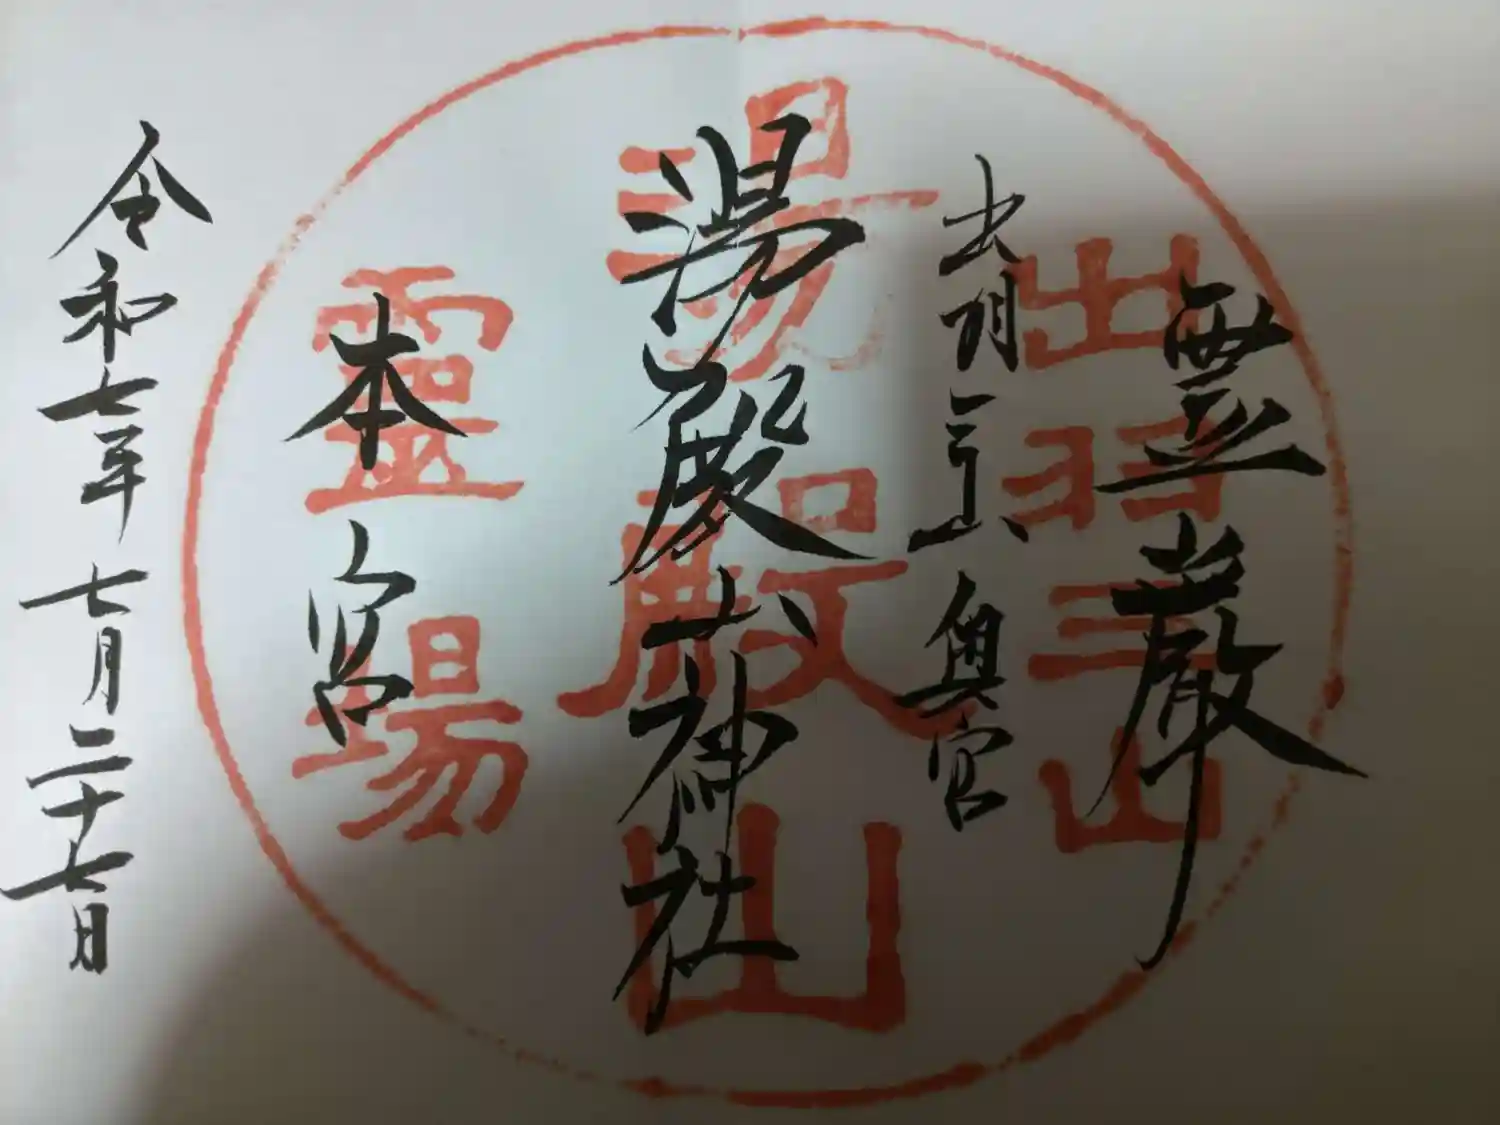 霊厳
出羽三山 奥宮
湯殿山神社
本宮
令和七年 七月二十七日
出羽三山
湯殿山
靈場